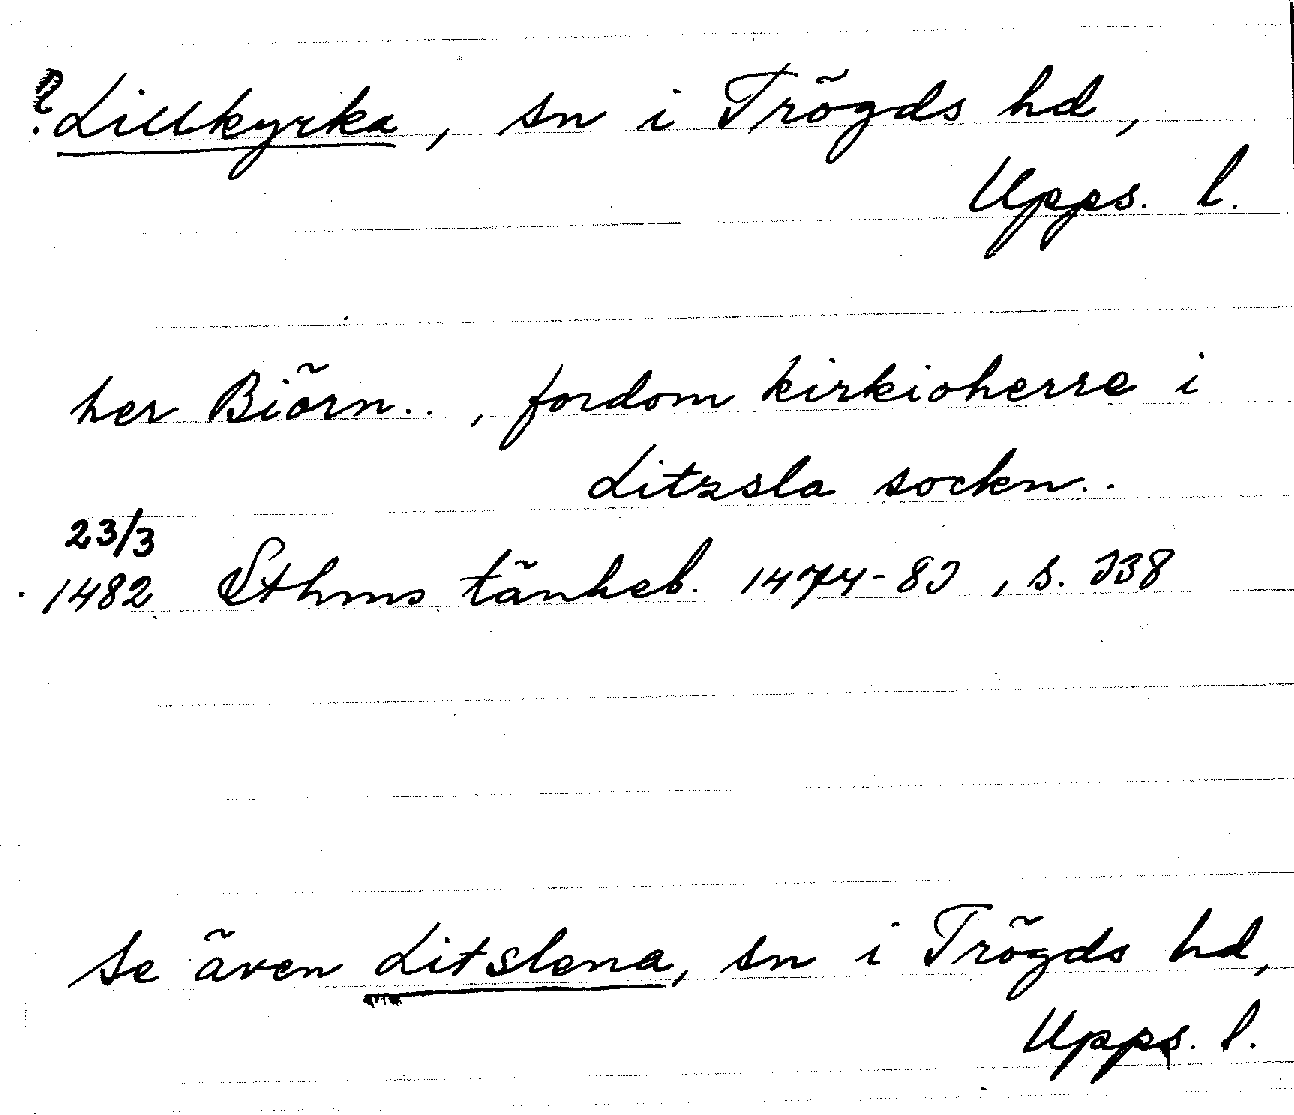 ? Lillkyrka, sn i Trögds hd,
Upps. l.
her Biörn.., fordom kirkioherre i
Litzsla sockn..
23/3
1482 Sthms tänkeb. 1474-83, s. 338
Se även Litslena, sn i Trögds hd,
Upps. l.